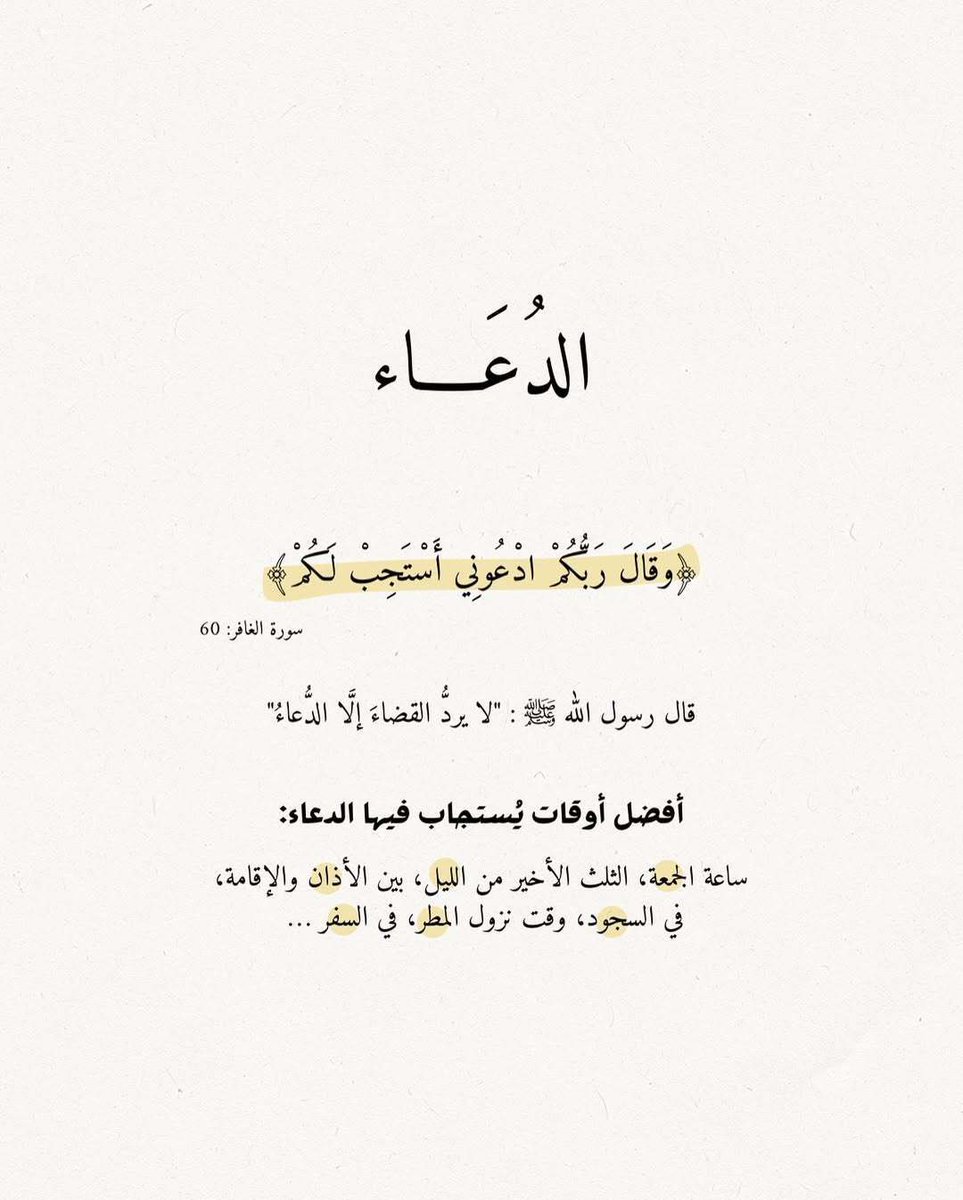 الدُعَـــاء
﴿وَقَالَ رَبُّكُمْ ادْعُونِي أَسْتَجِبْ لَكُمْ﴾
سورة الغافر: 60
قال رسول الله ﷺ : "لا يردُّ القضاءَ إلَّا الدُّعاءُ"
أفضل أوقات يُستجاب فيها الدعاء:
ساعة الجمعة، الثلث الأخير من الليل، بين الأذان والإقامة،
في السجود، وقت نزول المطر، في السفر ...